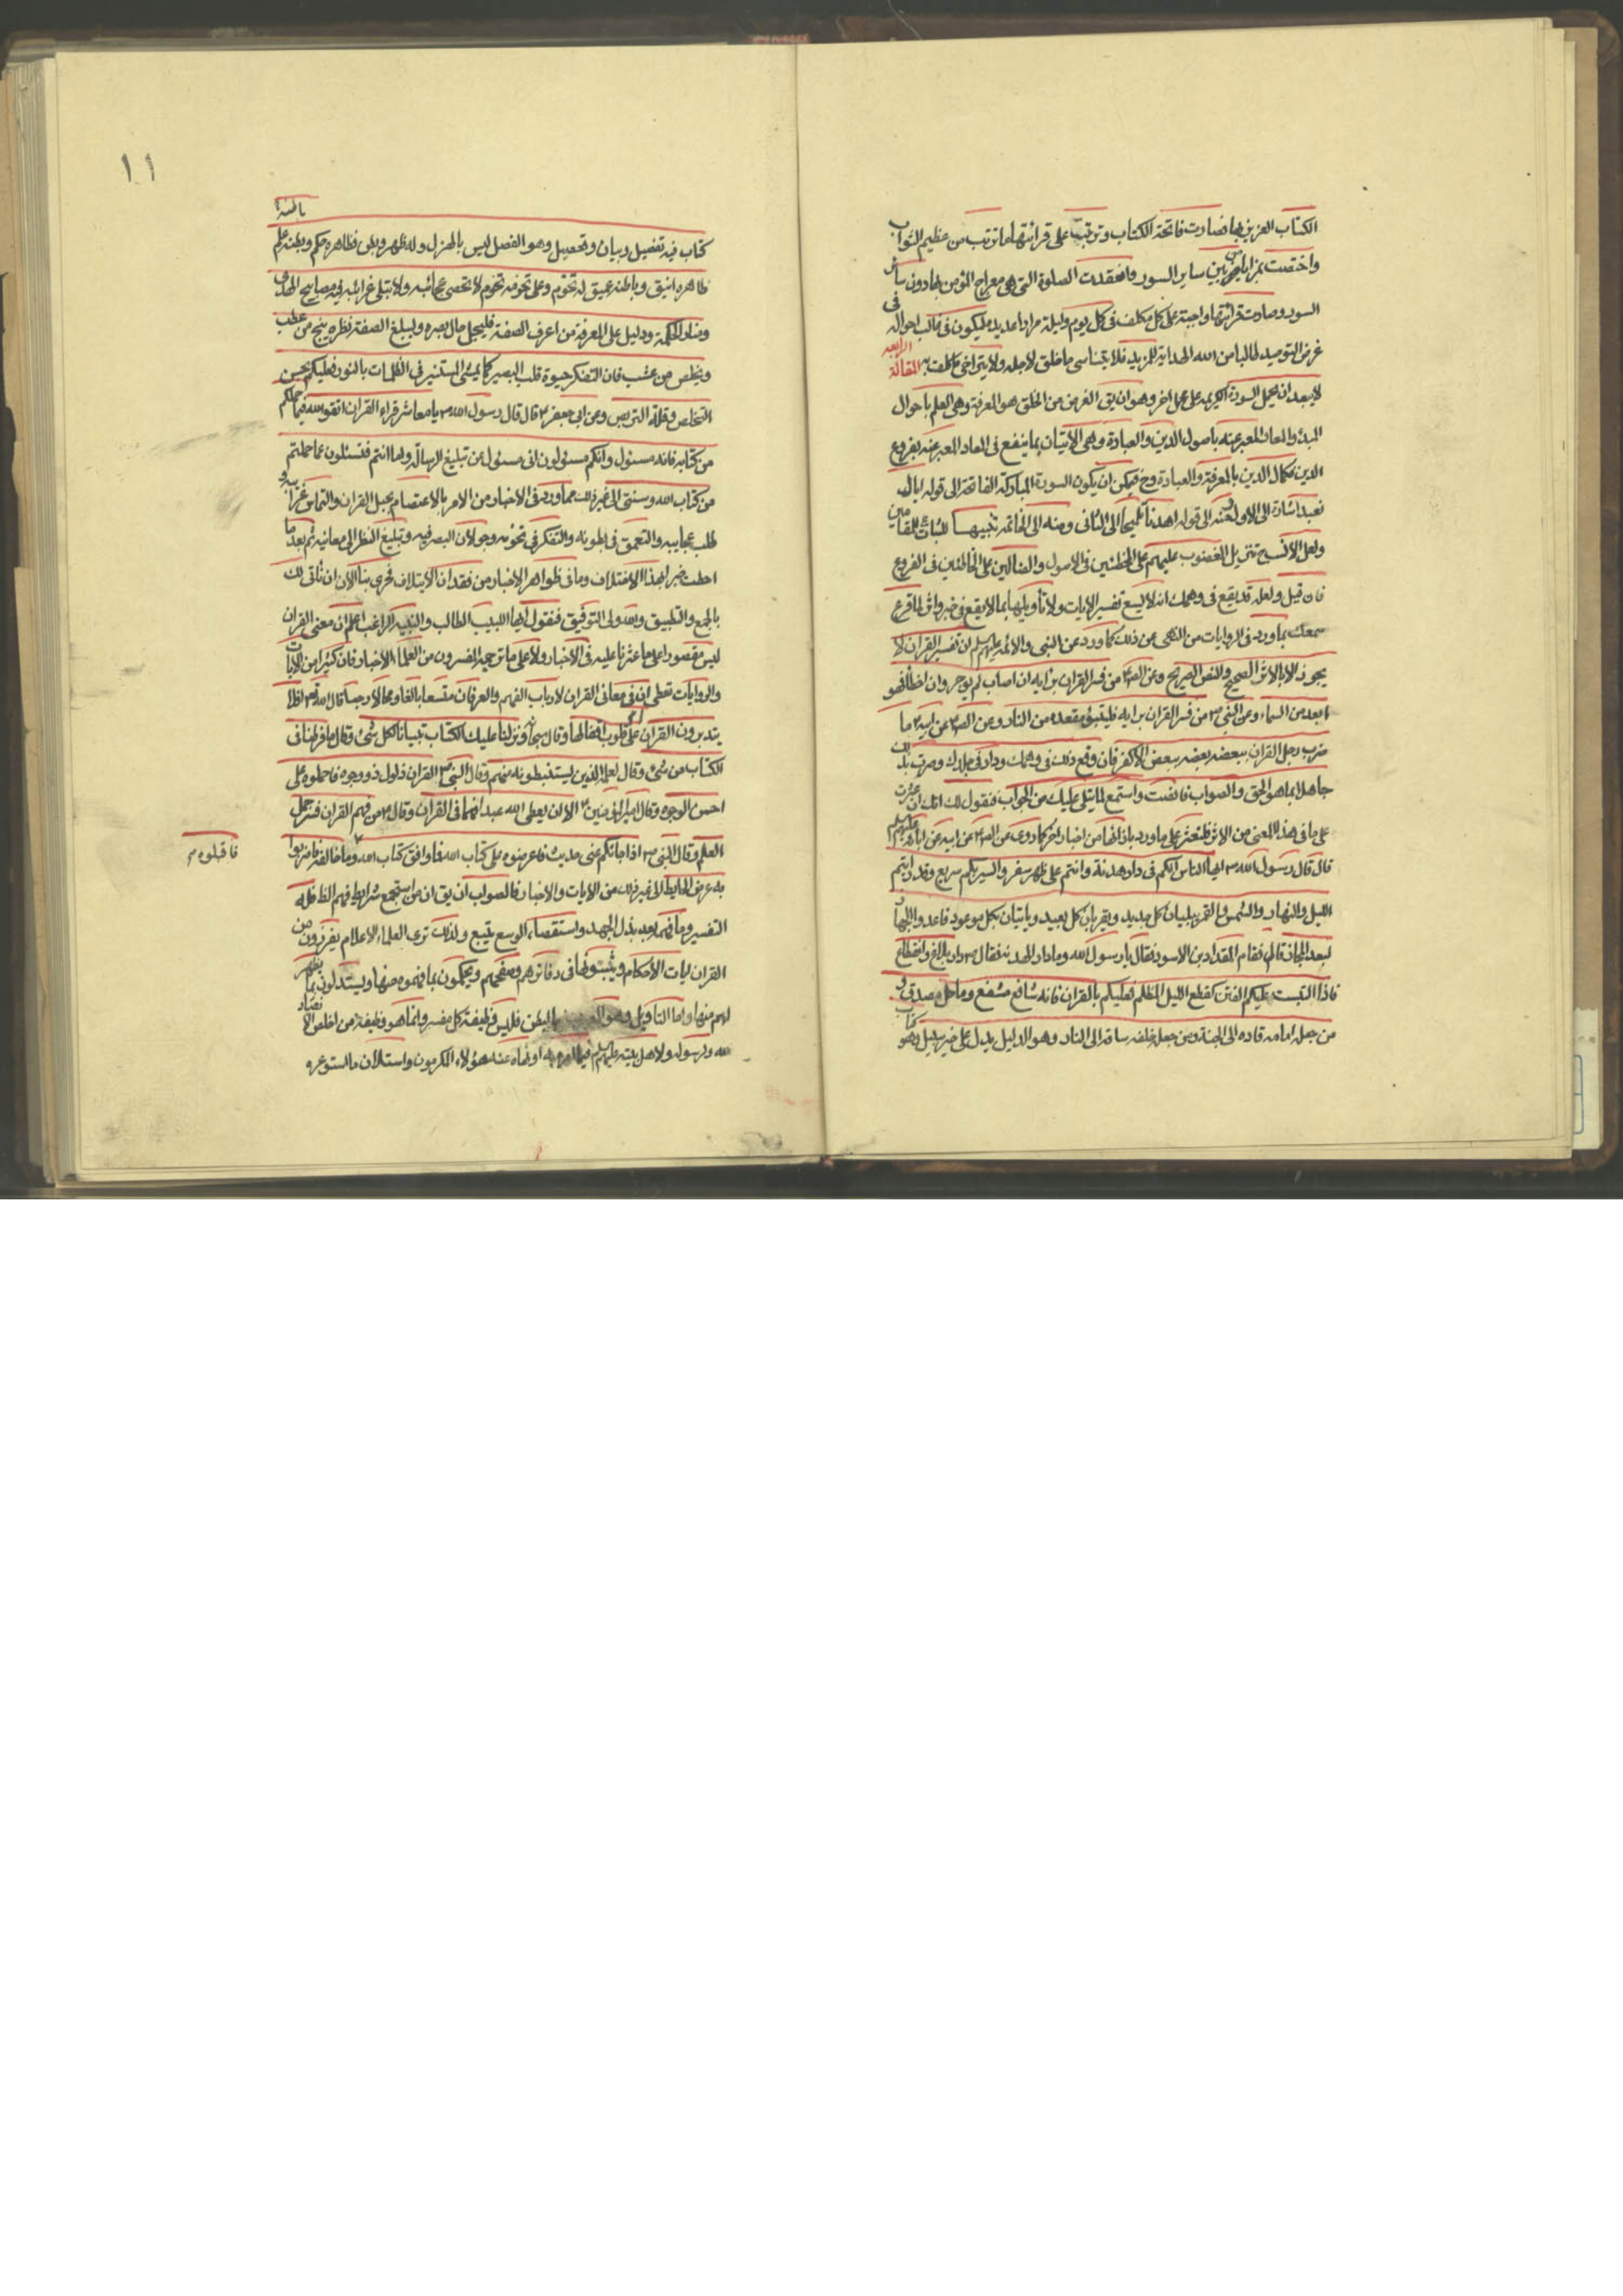 الكتاب العزيز بها فصارت فاتحة الكتاب وترتب على قرائتها ما ترتب من عظيم الثواب
واختصت بمزايا من بين ساير السور وانعقدت الصلوة التي هي معراج المؤمن بها دون ساير
السور وصارت قرائتها واجبة على كل مكلف في كل يوم وليلة مرارا عديدة ليكون في غالب احواله في
غرض التوحيد طالبا من الله الهداية للمزيد فلا يتناسى ما خلق لاجله ولا يتراخى عما كلف به المقالة الرابعة
لا يبعد ان يحمل السورة الكريمة على محمل اخر وهو ان يق الغرض من الخلق هو المعرفة وهي العلم باحوال
المبدء والمعاد المعبر عنه باصول الدين والعبادة وهي الاتيان بما ينفع في المعاد المعبر عنه بفروع
الدين فكمال الدين بالمعرفة والعبادة وح فيمكن ان يكون السورة المباركة الفاتحة الى قوله اياك
نعبد اشارة الى الاول ومنه الى قوله اهدنا تلميحا الى الثاني ومنه الى الخاتمة تنبيها للثبات على المقامين
ولعل الانسب ح تنزيل المغضوب عليهم على المخطئين في الاصول والضالين على الخاطئين في الفروع
فان قيل ولعله قد يقع في وهمك انه لا يسع تفسير الايات ولا تأويلها بما لا يقع في خبر واثر لما قرع
سمعك بما ورد في الروايات من النهي عن ذلك كما ورد عن النبي والائمة عليهم السلم ان تفسير القران لا
يجوز الا بالاثر الصحيح والنص الصريح وعن الص ع من فسر القران برأيه ان اصاب لم يوجر وان اخطأ فهو
ابعد من السماء وعن النبي ص من فسر القران برايه فليتبوء مقعده من النار وعن الص ع عن ابيه ع ما
ضرب رجل القران بعضه ببعض الا كفر فان وقع ذلك في وهمك ودار في خلدك وصرت بذلك
جاهلا بما هو الحق والصواب فانصت واستمع لما يتلى عليك من الجواب فنقول لك انك ان عثرت
على ما في هذا المعنى من الاثر فلتعثر على ما ورد بازائها من اخبار اخر كما روى عن الص ع عن ابيه عن ابائه عليهم السلم
قال قال رسول الله ص ايها الناس انكم في دار هدنة وانتم على ظهر سفر والسير بكم سريع وقد رايتم
الليل والنهار والشمس والقمر يبليان كل جديد ويقربان كل بعيد وياتيان بكل موعود فاعدوا الجهاز
لبعد المجاز قال فقام المقداد بن الاسود فقال يا رسول الله وما دار الهدنة فقال ص دار بلاغ وانقطاع
فاذا التبست عليكم الفتن كقطع الليل المظلم فعليكم بالقران فانه شافع مشفع وماحل مصدق و
من جعله امامه قاده الى الجنة ومن جعله خلفه ساقه الى النار وهو الدليل يدل على خير سبيل وهو كتاب
١١
باطنه
كتاب فيه تفصيل وبيان وتحصيل وهو الفصل ليس بالهزل وله ظهر وبطن فظاهره حكم وبطنه علم
ظاهره انيق وباطنه عميق له تخوم وعلى تخومه تخوم لا تحصى عجائبه ولا تبلى غرائبه فيه مصابيح الهدى
ومنار الحكمة ودليل على المعرفة من اعرف الصفة فليجل جال بصره وليبلغ الصفة نظره ينج من عطب
ويخلص من عشب فان التفكر حيوة قلب البصير كما يمشي المستنير في الظلمات بالنور فعليكم بحسن
التخلص وقلة التربص وعن ابي جعفر ع قال قال رسول الله ص يا معاشر قراء القران اتقو الله فيما حملكم
من كتابه فانه مسئول وانكم مسئولون اني مسئول عن تبليغ الرسالة واما انتم فتسئلون عما حملتم
من كتاب الله وسنتي الى غير ذلك مما ورد في الاخبار من الامر بالاعتصام بحبل القران والتماس غرائبه و
طلب عجايبه والتعمق في بطونه والتفكر في تخومه وجولان البصر فيه وتبليغ النظر الى معانيه ثم بعد ما
احطت خبرا بهذا الاختلاف وما في ظواهر الاخبار من فقدان الايتلاف فحري بنا الان ان ناتي لك
بالجمع والتطبيق والله ولي التوفيق فنقول ايها اللبيب الطالب والنبيه الراغب اعلم ان معنى القران
ليس مقصورا على ما عثرنا عليه في الاخبار ولا على ما ترجمه المفسرون من العلماء الاخبار فان كثيرا من الايات
والروايات تعطى ان في معاني القران لارباب الفهم والعرفان متسعا بالغا ومجالا رحبا قال الله تع افلا
يتدبرون القران ام على قلوب اقفالها وقال سبحانه ونزلنا عليك الكتاب تبيانا لكل شئ وقال ما فرطنا في
الكتاب من شئ وقال لعلمه الذين يستنبطونه منهم وقال النبي ص القران ذلول ذو وجوه فاحملوه على
احسن الوجوه وقال امير المؤمنين ع الا ان يعطى الله عبدا فهما في القران وقال ع من فهم القران فسر جمل
العلم وقال النبي ص اذا جائكم عني حديث فاعرضوه على كتاب الله فما وافق كتاب الله وما خالفه فاضربوا
فاقبلوه
به عرض الحايط الى غير ذلك من الايات والاخبار فالصواب ان يق ان من استجمع شرايط فهم الظ فله
التفسير وما فهمه بعد بذل الجهد واستقصاء الوسع يتبع ولذلك ترى العلماء الاعلام يفرزون من
القران ايات الاحكام ويثبتونها في دفاترهم وصحفهم ويحكمون بما فهموه منها ويستدلون بما يظهر
لهم منها واما التاويل وهو البطن فليس وظيفة كل مفسر وانما هو وظيفة من اخلص الانقياد
لله ولرسوله ولاهل بيته عليهم السلم فيما امروا به او نهاه عنه هؤلاء المكرمون واستلان ما استوعره